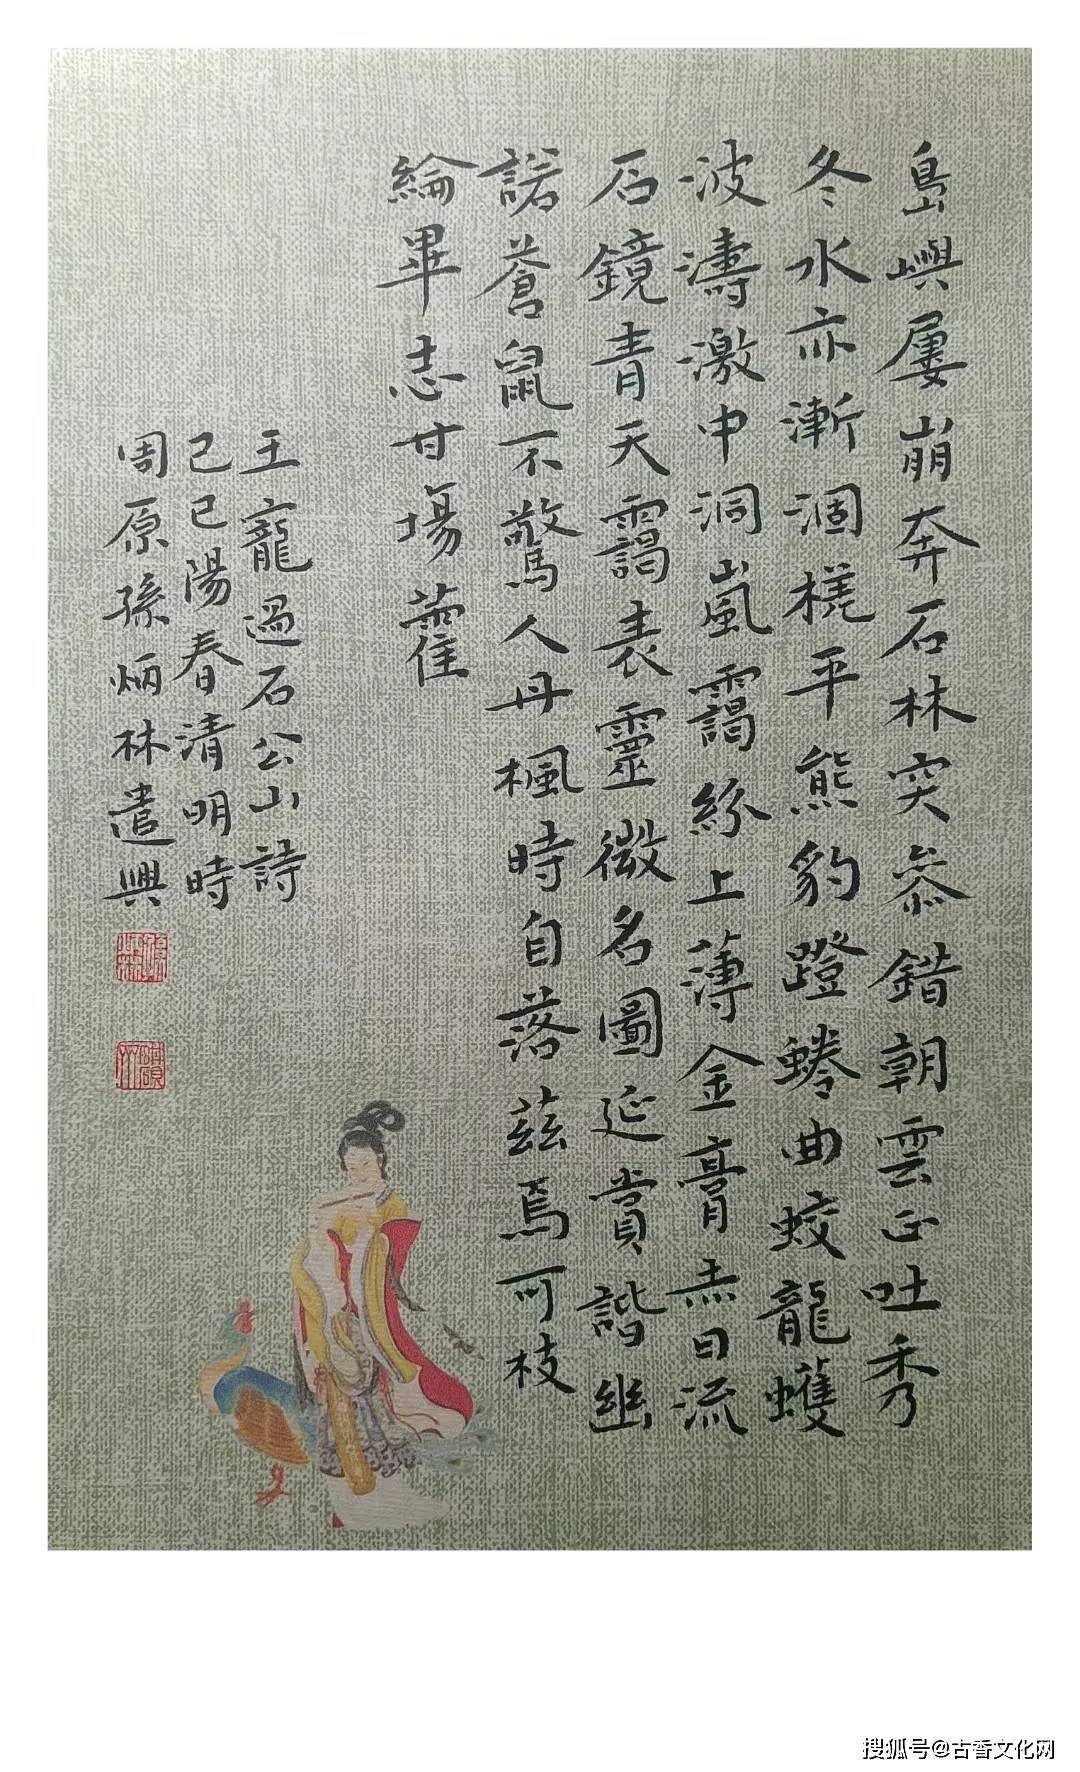 島嶼屢崩奔石林突叅錯朝雲正吐秀
冬水亦漸涸槎平熊豹蹬蜷曲蛟龍蠖
波濤激中洞嵐靄紛上薄金膏赤日流
石鏡青天靄表靈徵名圖延賞諧幽
諾蒼鼠不驚人丹楓時自落茲焉可枝
綸畢志甘場藿
王寵過石公山詩
己巳陽春清明時
周原孫炳林遣興
搜狐号@古香文化网